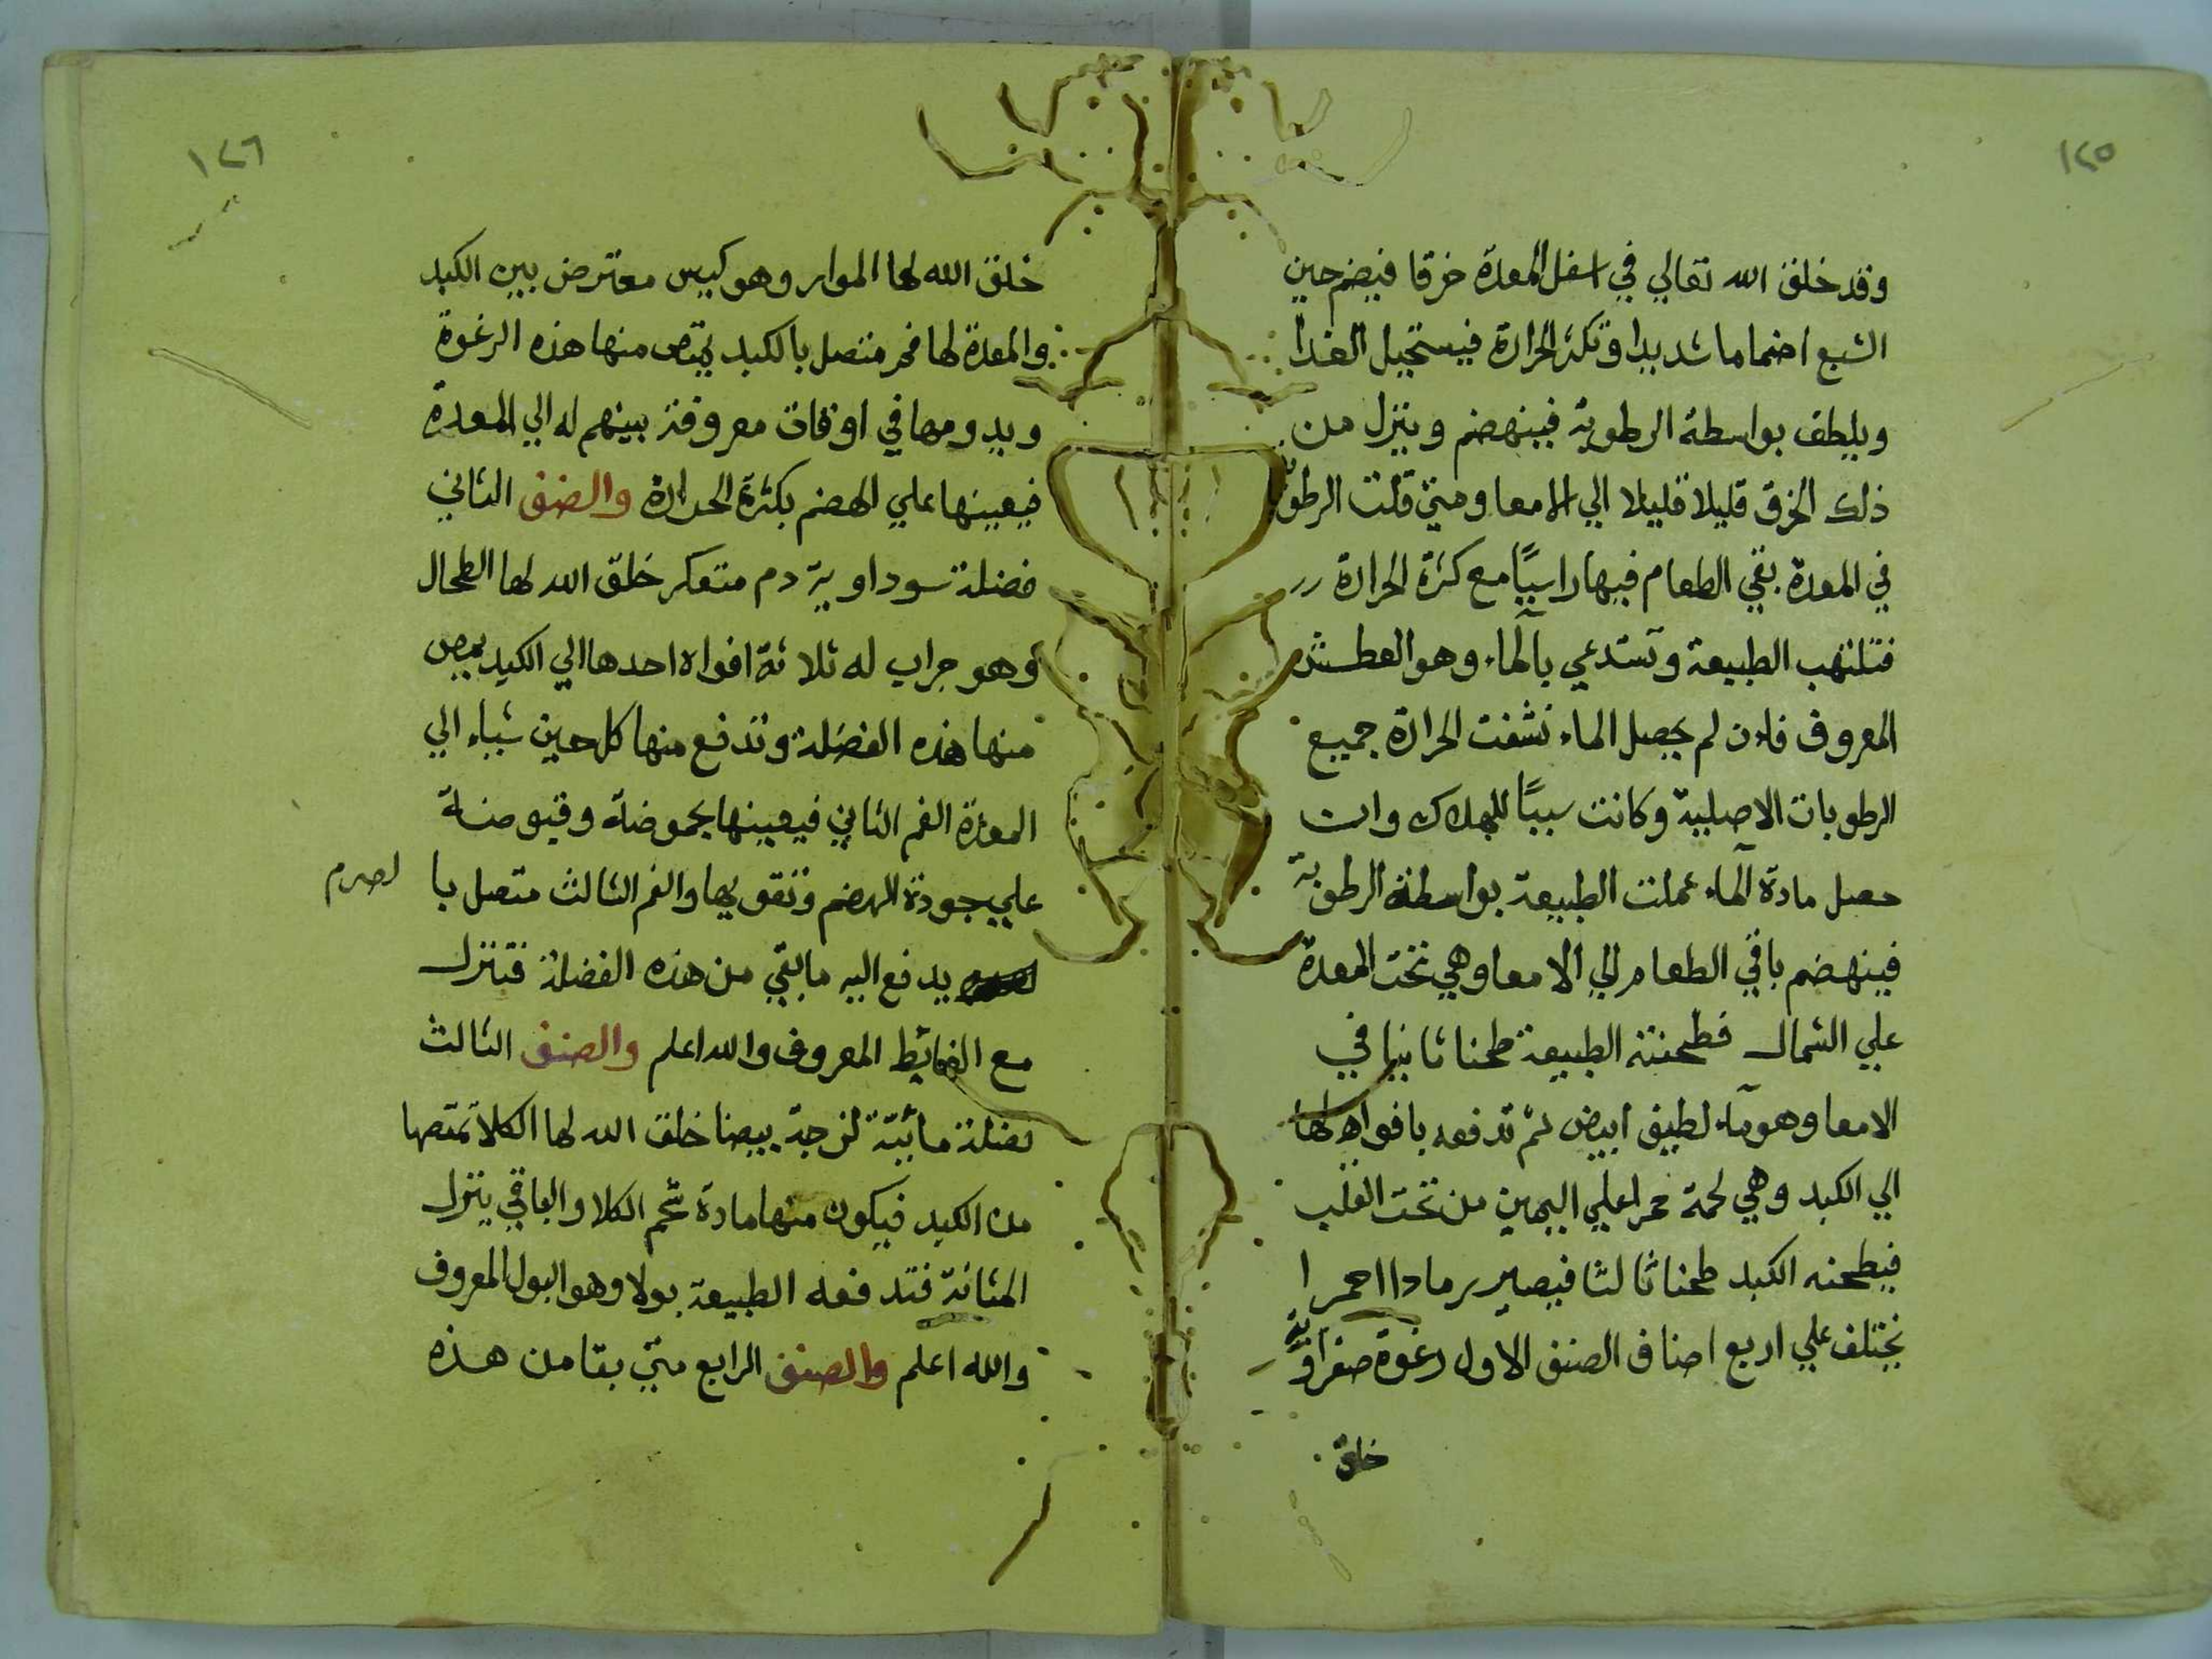 ١٢٥
وقد خلق الله تعالي في اسفل المعدة خرقا فيضم حين
الشبع اضماما شديدا وتكثر الحرارة فيستحيل الغدا
ويلطف بواسطة الرطوبة فينهضم وينزل من
ذلك الخرق قليلا قليلا الي الامعا ومتي قلت الرطوبة
في المعدة بقي الطعام فيها راسبًا مع كثرة الحرارة
فتلتهب الطبيعة وتستدعي بالماء وهو العطش
المعروف فان لم يحصل الماء نشفت الحرارة جميع
الرطوبات الاصلية وكانت سببًا للهلاك وان
حصل مادة الماء عملت الطبيعة بواسطة الرطوبة
فينهضم باقي الطعام الي الامعا وهي تحت المعدة
علي الشمال فطحنته الطبيعة طحنا ثانيا في
الامعا وهو ماء لطيف ابيض ثم تدفعه بافواه لها
الي الكبد وهي لحمة حمرا علي اليمين من تحت القلب
فيطحنه الكبد طحنا ثالثا فيصير رمادا احمرا
يختلف علي اربع اصناف الصنف الاول رغوة صفراوية
خلق
١٢٦
خلق الله لها المرار وهو كيس معترض بين الكبد
والمعدة لها فم متصل بالكبد يمتص منها هذه الرغوة
ويدومها في اوقات معروفة بينهم له الي المعدة
فيعينها علي الهضم بكثرة الحرارة والصنف الثاني
فضلة سوداوية دم متعكر خلق الله لها الطحال
وهو جراب له ثلاثة افواه احدها الي الكبد يمص
منها هذه الفضلة وتدفع منها كل حين شياء الي
المعدة الفم الثاني فيعينها بحموضة وقبوضة
علي جودة الهضم وتقويها والفم الثالث متصل با لصرم
يدفع اليه ما بقي من هذه الفضلة فتنزل
مع الغائط المعروف والله اعلم والصنف الثالث
فضلة مائية لزجة بيضا خلق الله لها الكلا تمتصها
من الكبد فيكون منها مادة شحم الكلا والباقي ينزل
المثانة فتدفعه الطبيعة بولا وهو البول المعروف
والله اعلم والصنف الرابع متي بقا من هذه